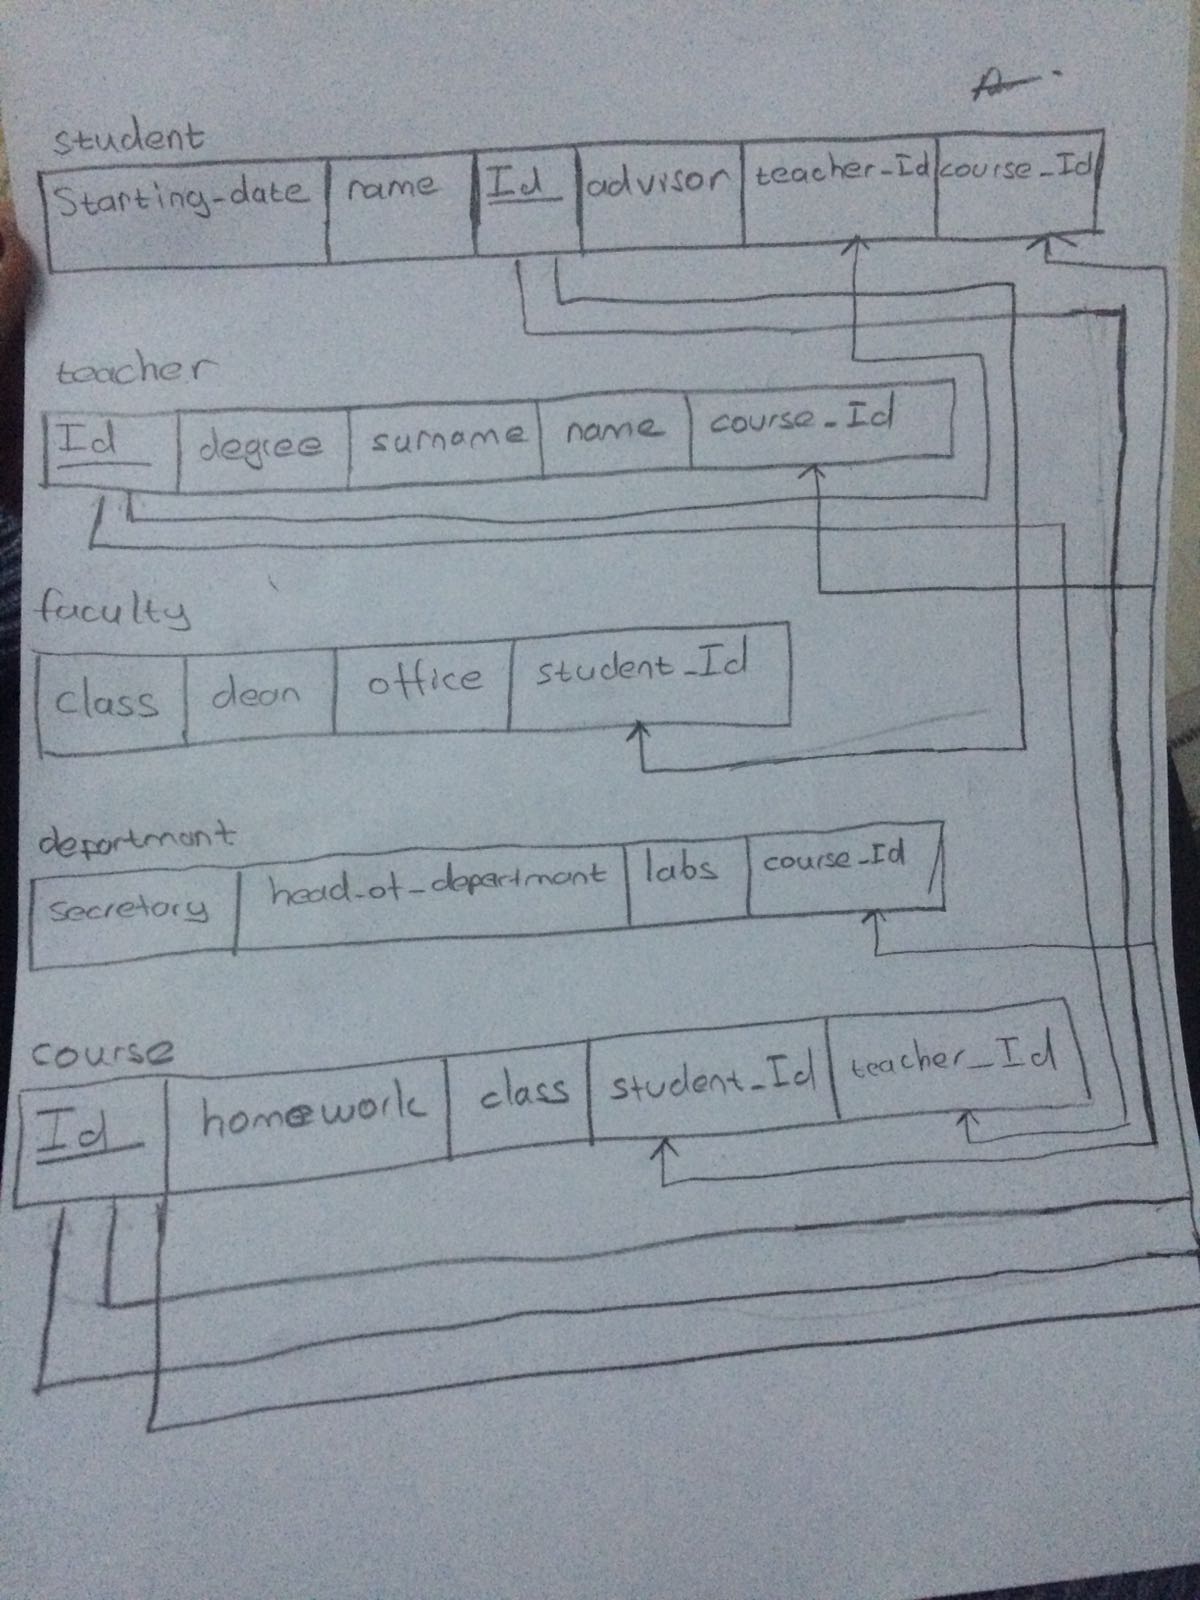 student
Starting-date name Id advisor teacher-Id course_Id
teacher
Id degree surname name course_Id
faculty
class dean office student_Id
departmant
secretary head_of_departmant labs course_Id
course
Id homework class student_Id teacher_Id